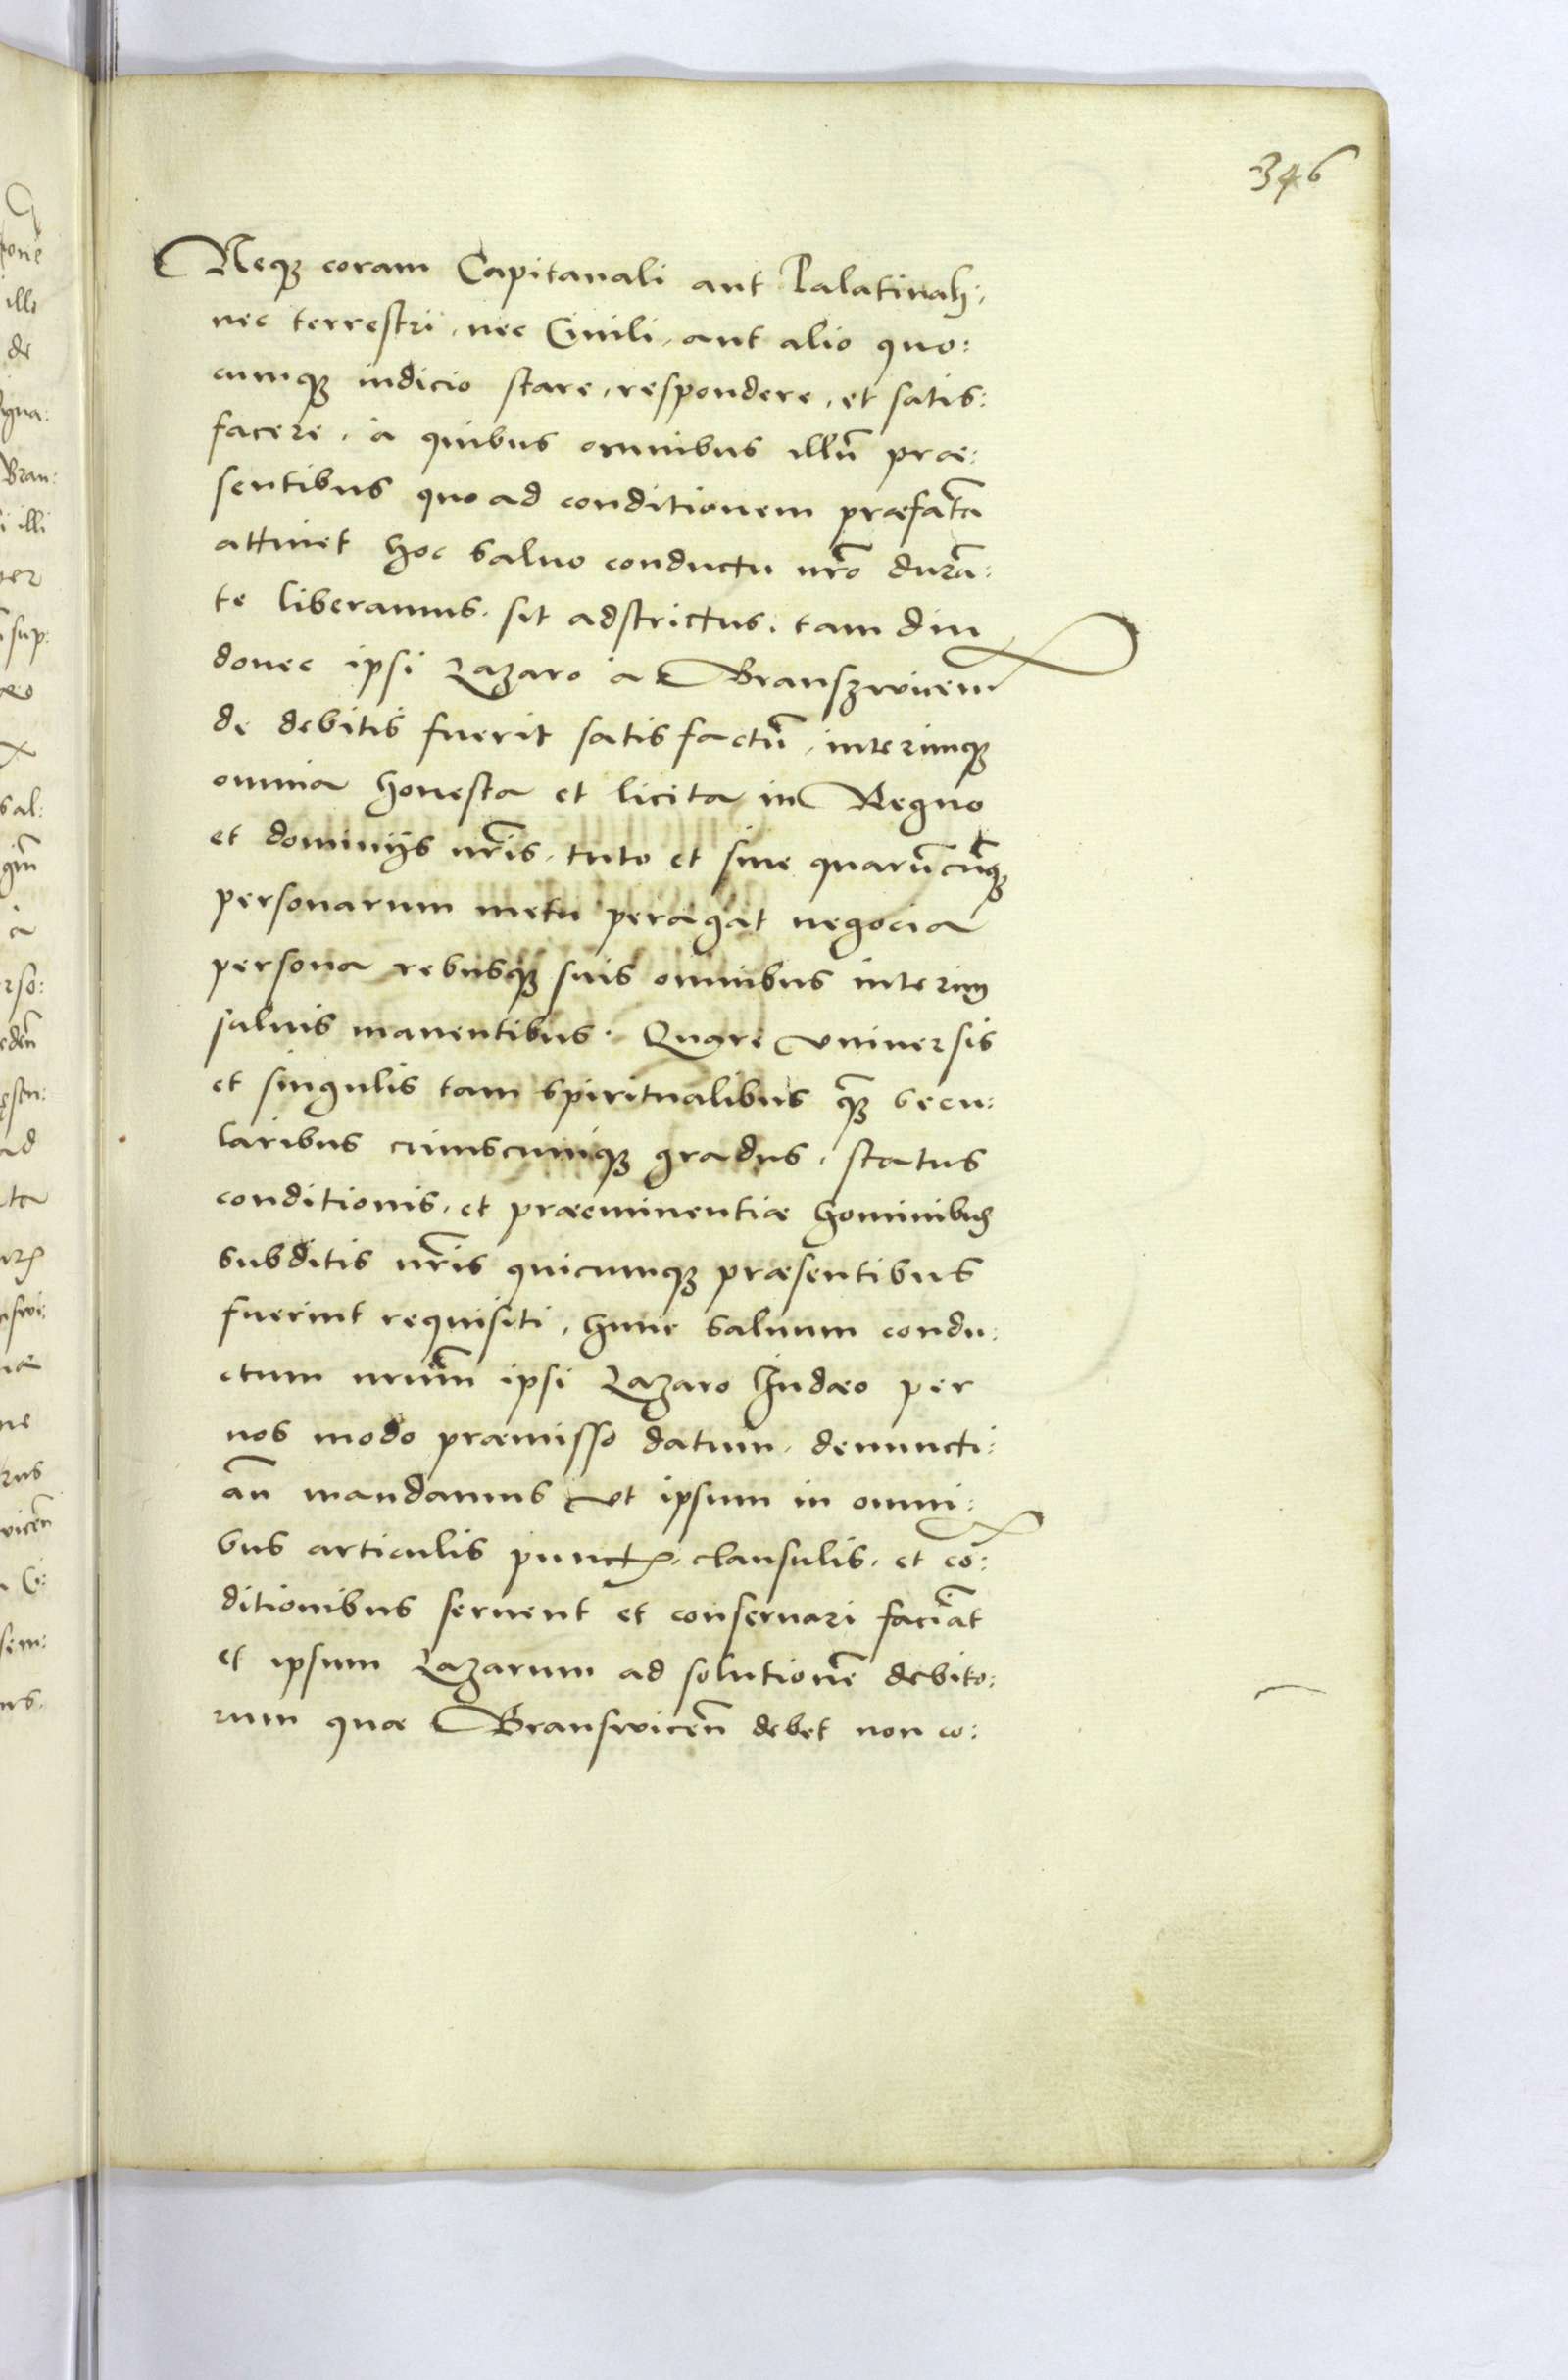 346
Neq₃ coram Capitanali aut Palatinali,
nec terrestri, nec Ciuili, aut alio quo:
cumq₃ iudicio stare, respondere, et satis:
facere, a quibus omnibus illū præ:
sentibus quo ad conditionem præfatā
attinet hoc saluo conductu nr̄o durā:
te liberamus. sit adstrictus. tam diu
donec ipsi Lazaro a Branszwicen̄
de debitis fuerit satis factū, interimq₃
omnia honesta et licita in Regno
et dominijs nr̄is. tuto et sine quarūcūq₃
personarum metu peragat negocia
persona rebusq₃ suis omnibus interim
saluis manentibus. Quare vniuersis
et singulis tam spiritualibus q̄₃ secu:
laribus cuiuscumq₃ gradus, status
conditionis, et præeminentiæ hominibus
subditis nr̄is quicumq₃ præsentibus
fuerint requisiti, hunc saluum condu:
ctum nrūm ipsi Lazaro Iudæo per
nos modo præmisso datum, denuncti:
an̄ mandamus vt ipsum in omni:
bus articulis punctis, clausulis, et cō:
ditionibus seruent et conseruari faciāt
et ipsum Lazarum ad solutionē debito:
rum quæ Branswicen̄ debet non co:
ille
de
gna:
Bran:
illi
per
sup:
sal:
rso:
eden̄
ad
ta
ne
rus
vicen̄
sem: